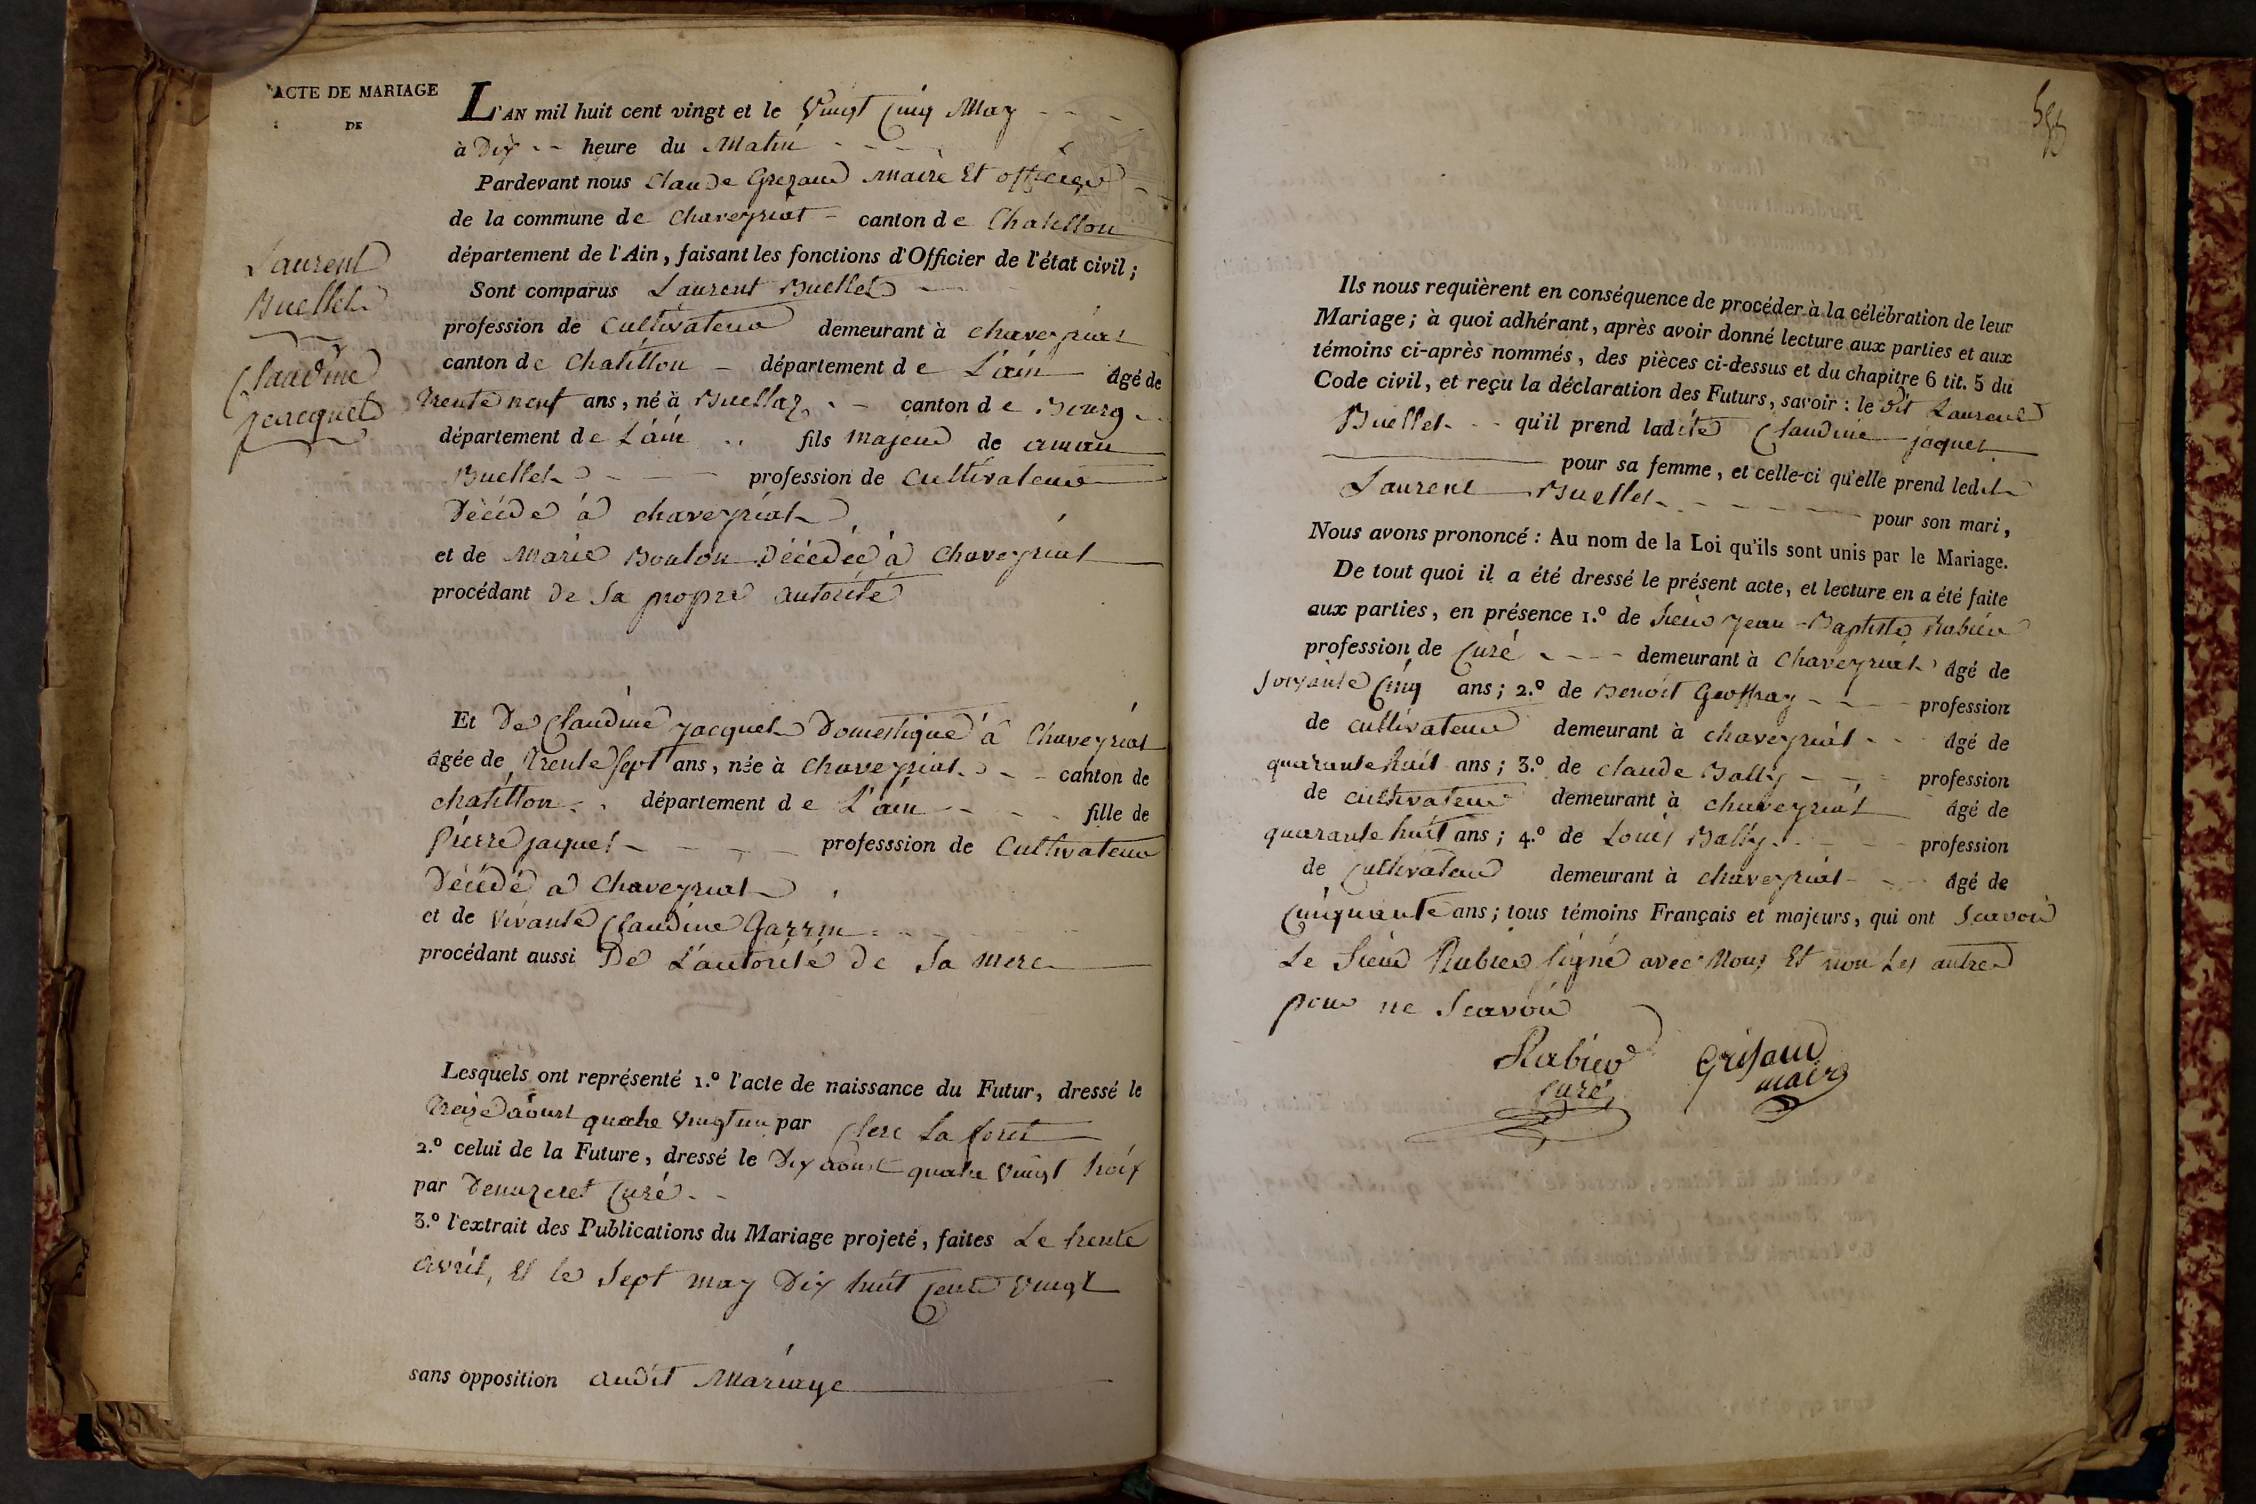 ACTE DE MARIAGE
DE
Laurent
Buellet
Claudine
jacquet
L'AN mil huit cent vingt et le Vingt Cinq May
à Dix heure du Matin
Pardevant nous Claude Grezaud Maire Et officier
de la commune de Chaveyriat canton de Chatillon
département de l'Ain, faisant les fonctions d'Officier de l'état civil;
Sont comparus Laurent Buellet
profession de Cultivateur demeurant à chaveyriat
canton de Chatillon département de L'ain âgé de
Trente neuf ans, né à Buellaz canton de Bourg
département de L'ain fils majeur de aman
Buellet profession de Cultivateur
Décédé à chaveyriat
et de Marie Bouton Décédée à Chaveyriat
procédant de sa propre autorité
Et De Claudine Jacquet Domestique à Chaveyriat
âgée de Trente Sept ans, née à Chaveyriat canton de
chatillon département de L'ain fille de
Pierre jaquet professsion de Cultivateur
Décédé a Chaveyriat
et de vivante Claudine Garrin
procédant aussi De L'autorité de Sa mere
Lesquels ont représenté 1.º l'acte de naissance du Futur, dressé le
Treize aoust quatre Vingt un par Clerc La foret
2.º celui de la Future, dressé le Dix aoust quatre Vingt troix
par Denuzeret Curé
3.º l'extrait des Publications du Mariage projeté, faites Le trente
avril, Et le Sept may Dix huit Cent Vingt
sans opposition audit Mariage
Ils nous requièrent en conséquence de procéder à la célébration de leur
Mariage; à quoi adhérant, après avoir donné lecture aux parties et aux
témoins ci-après nommés, des pièces ci-dessus et du chapitre 6 tit. 5 du
Code civil, et reçu la déclaration des Futurs, savoir: le dit Laurent
Buellet qu'il prend ladite Claudine jaquet
pour sa femme, et celle-ci qu'elle prend ledit
Laurent Buellet pour son mari,
Nous avons prononcé: Au nom de la Loi qu'ils sont unis par le Mariage.
De tout quoi il a été dressé le présent acte, et lecture en a été faite
aux parties, en présence 1.º de Sieur Jean Baptiste Rubier
profession de Curé demeurant à Chaveyriat âgé de
Soixante Cinq ans; 2.º de Benoit Geoffray profession
de cultivateur demeurant à chaveyriat âgé de
quarante huit ans; 3.º de claude Bally profession
de cultivateur demeurant à chaveyriat âgé de
quarante huit ans; 4.º de Louis Bally profession
de Cultivateur demeurant à chaveyriat âgé de
Cinquante ans; tous témoins Français et majeurs, qui ont Scavoir
Le Sieur Rubier signé avec Nous Et non Les autres
pour ne Scavoir
Rubier Grisaud
curé maire